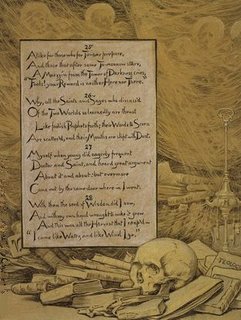 25
Alike for those who for To-day prepare,
And those that after some To-morrow stare,
A Muezzin from the Tower of Darkness cries,
"Fools! your Reward is neither Here nor There."
26
Why, all the Saints and Sages who discuss'd
Of the Two Worlds so learnedly are thrust
Like foolish Prophets forth; their Words to Scorn
Are scatter'd, and their Mouths are stopt with Dust.
27
Myself when young did eagerly frequent
Doctor and Saint, and heard great argument
About it and about: but evermore
Came out by the same door where in I went.
28
With them the seed of Wisdom did I sow,
And with my hand wrought to make it grow
And this was all the Harvest that I reap'd
"I came like Water, and like Wind I go."